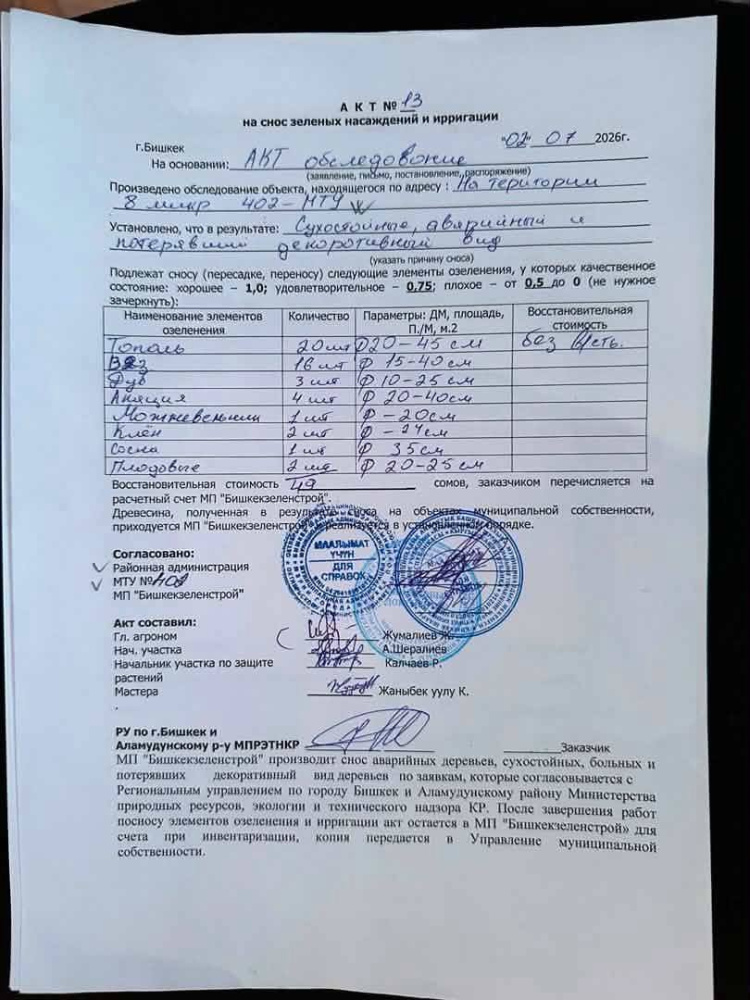 А К Т № 13
на снос зеленых насаждений и ирригации
г.Бишкек "02" 07 2026г.
На основании: АКТ обследовоние
(заявление, письмо, постановление, распоряжение)
Произведено обследование объекта, находящегося по адресу : На територии
8 микр 402-МТУ
Установлено, что в результате: Сухостойные, аварийный и
потерявший декоротивный вид
(указать причину сноса)
Подлежат сносу (пересадке, переносу) следующие элементы озеленения, у которых качественное
состояние: хорошее – 1,0; удовлетворительное – 0,75; плохое – от 0,5 до 0 (не нужное
зачеркнуть):
Наименование элементов озеленения Количество Параметры: ДМ, площадь, П./М, м.2 Восстановительная стоимость
Тополь 20 шт Ф20-45 см без
Вяз 16 шт Ф 15-40 см
Дуб 3 шт Ф 10-25 см
Акация 4 шт Ф 20-40см
Можжевельник 1 шт Ф -20см
Клён 2 шт Ф -24см
Сосна 1 шт Ф 35 см
Плодовые 2 шт Ф 20-25 см
Восстановительная стоимость 49 сомов, заказчиком перечисляется на
расчетный счет МП "Бишкекзеленстрой".
Древесина, полученная в результате сноса на объектах муниципальной собственности,
приходуется МП "Бишкекзеленстрой" реализуется в установленном порядке.
Согласовано:
Районная администрация
МТУ №
МП "Бишкекзеленстрой"
МААЛЫМАТ
ҮЧҮН
ДЛЯ
СПРАВОК
Акт составил:
Гл. агроном Жумалиев Ж.
Нач. участка А.Шералиев
Начальник участка по защите Калчаев Р.
растений
Мастера Жаныбек уулу К.
РУ по г.Бишкек и
Аламудунскому р-у МПРЭТНКР Заказчик
МП "Бишкекзеленстрой" производит снос аварийных деревьев, сухостойных, больных и
потерявших декоративный вид деревьев по заявкам, которые согласовывается с
Региональным управлением по городу Бишкек и Аламудунскому району Министерства
природных ресурсов, экологии и технического надзора КР. После завершения работ
посносу элементов озеленения и ирригации акт остается в МП "Бишкекзеленстрой» для
счета при инвентаризации, копия передается в Управление муниципальной
собственности.